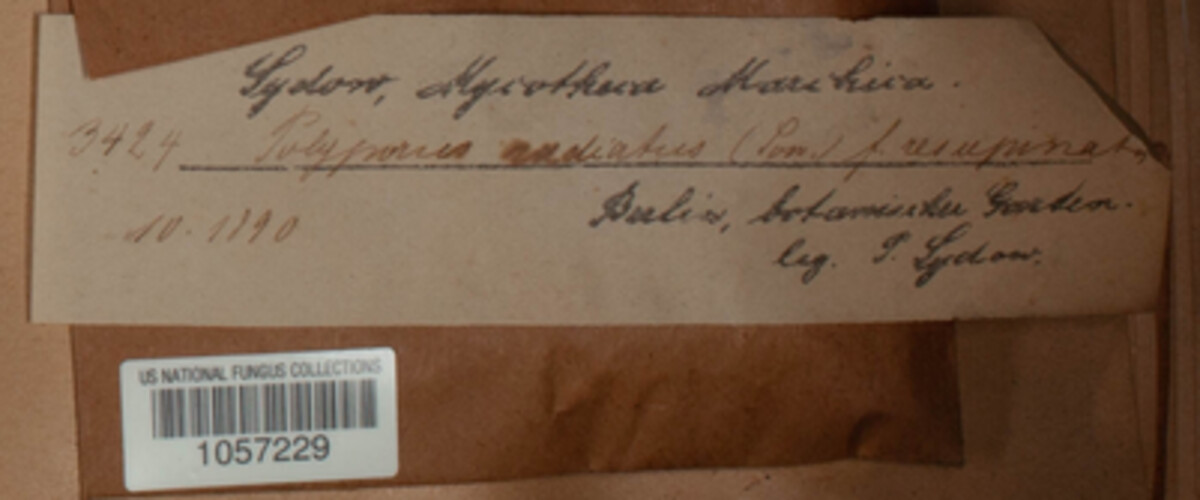 Sydow, Mycotheca Marchica.
3424 Polyporus radiatus (Sow.) f. resupinat
10. 1890
Berlin, botanischer Garten.
leg. P. Sydow.
US NATIONAL FUNGUS COLLECTIONS
1057229